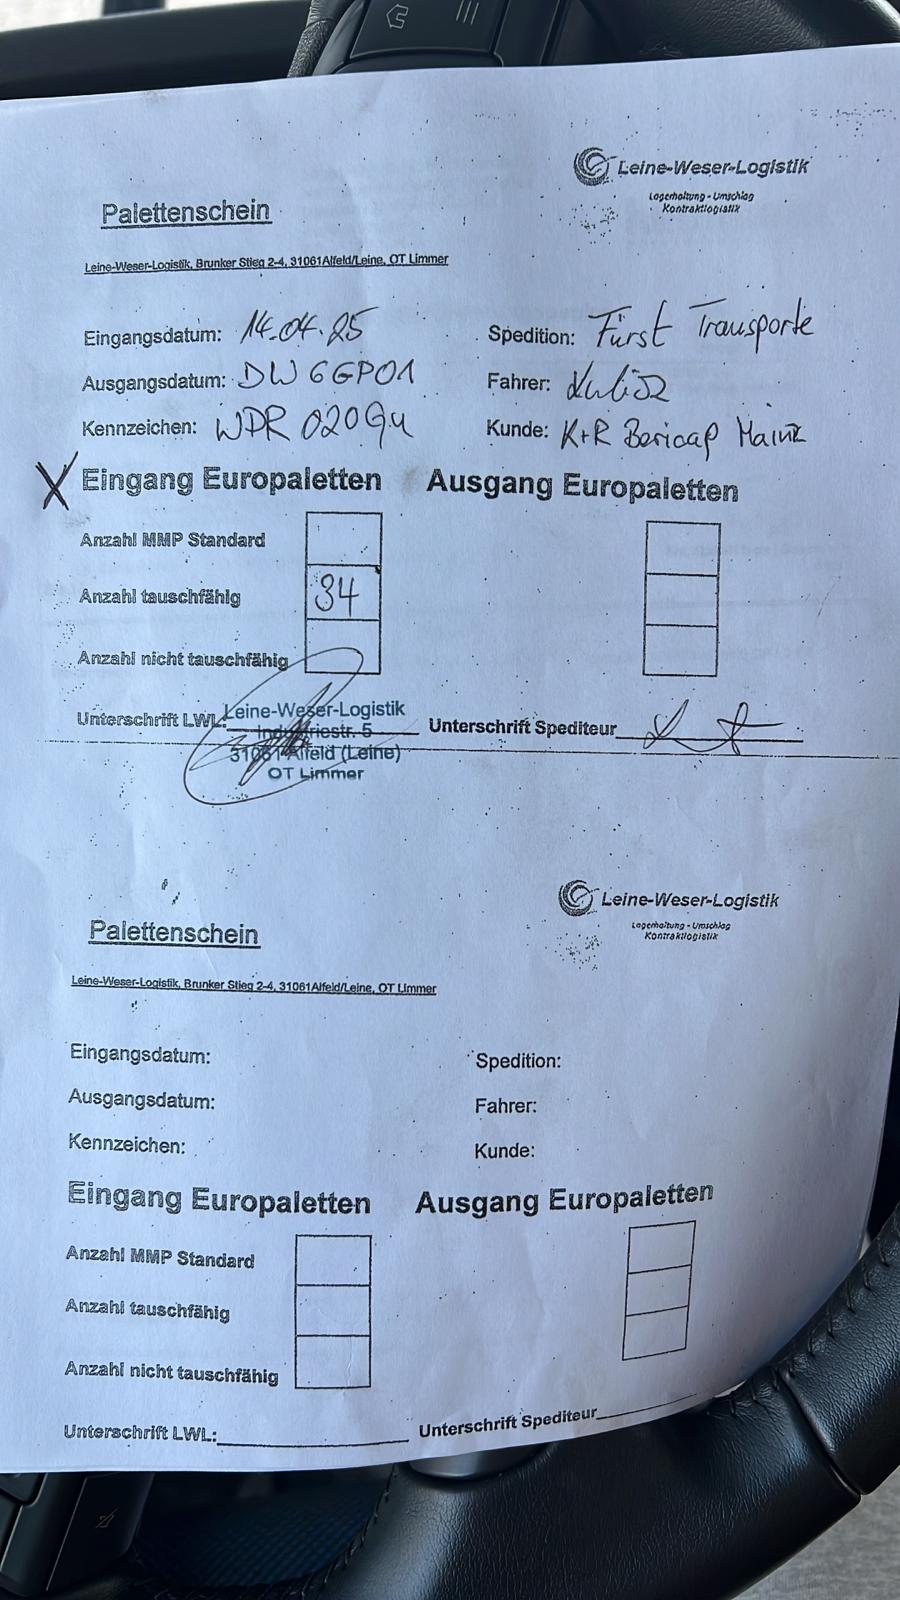 Leine-Weser-Logistik
Lagerhaltung - Umschlag
Kontraktlogistik
Palettenschein
Leine-Weser-Logistik, Brunker Stieg 2-4, 31061Alfeld/Leine, OT Limmer
Eingangsdatum: 14.04.25 Spedition: Fürst Transporte
Ausgangsdatum: DW6GP01 Fahrer:
Kennzeichen: WPR 020 Kunde: K+R Bericap Mainz
X Eingang Europaletten Ausgang Europaletten
Anzahl MMP Standard
Anzahl tauschfähig 34
Anzahl nicht tauschfähig
Unterschrift LWL: Unterschrift Spediteur
Leine-Weser-Logistik
Industriestr. 5
31061 Alfeld (Leine)
OT Limmer
Leine-Weser-Logistik
Lagerhaltung - Umschlag
Kontraktlogistik
Palettenschein
Leine-Weser-Logistik, Brunker Stieg 2-4, 31061Alfeld/Leine, OT Limmer
Eingangsdatum: Spedition:
Ausgangsdatum: Fahrer:
Kennzeichen: Kunde:
Eingang Europaletten Ausgang Europaletten
Anzahl MMP Standard
Anzahl tauschfähig
Anzahl nicht tauschfähig
Unterschrift LWL: Unterschrift Spediteur